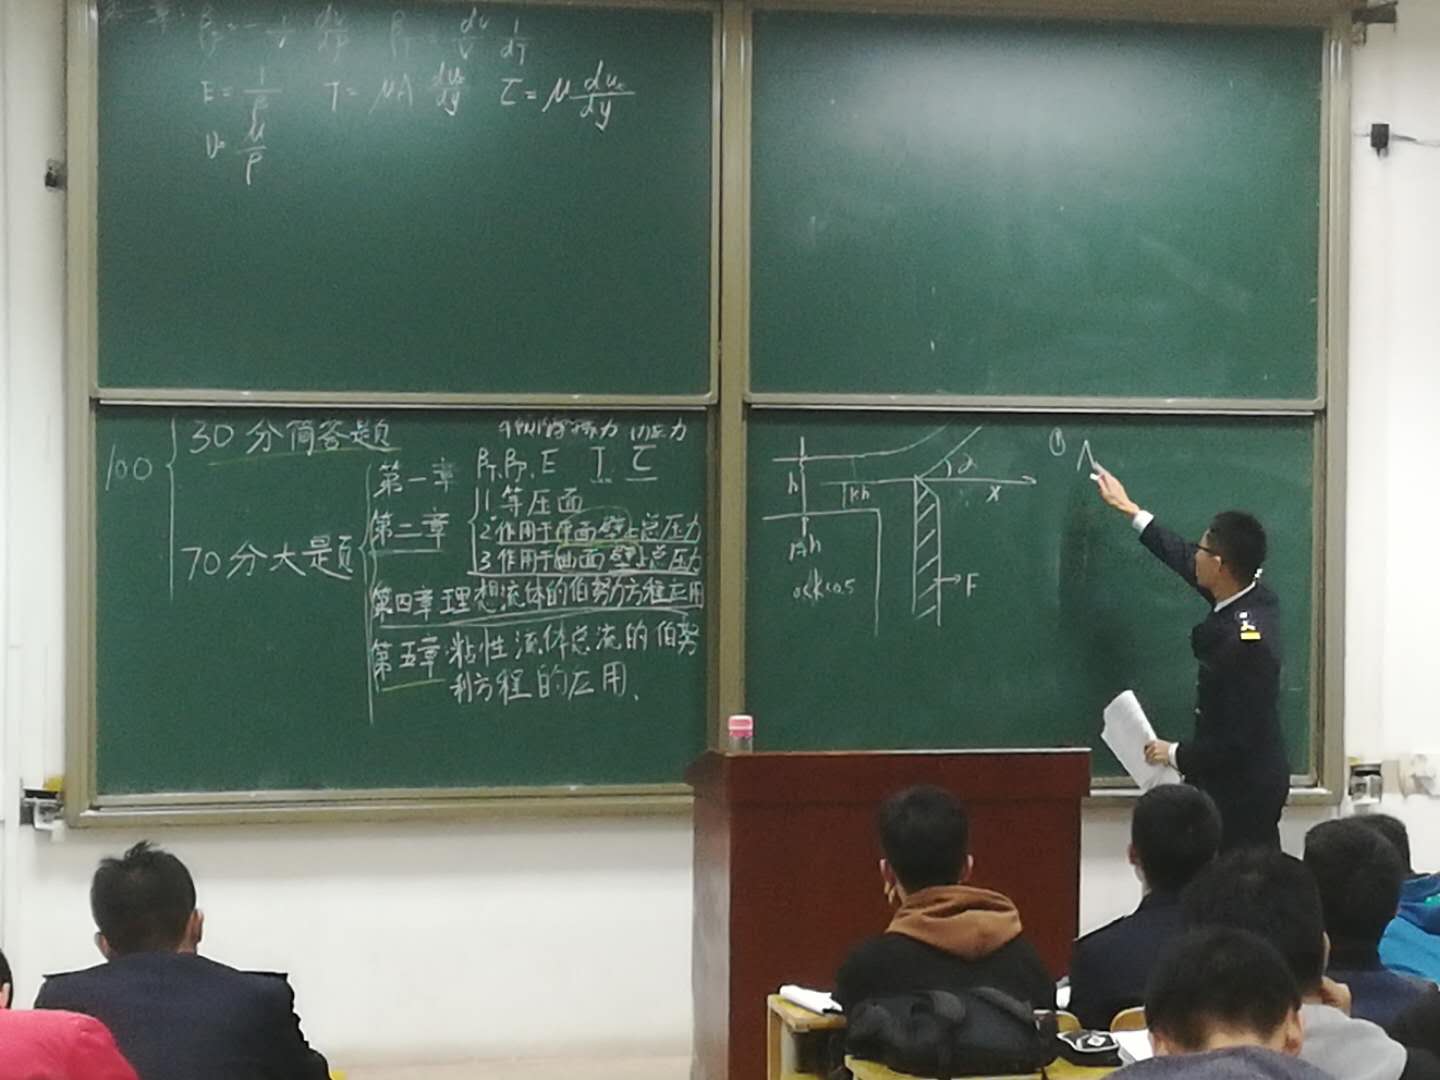 E = 1/β T = μA du/dy τ = μ du/dy
ν = μ/ρ
100
30分简答题
70分大题
第一章 βT, βP, E T τ
第二章 1. 等压面
2. 作用于平面壁上总压力
3. 作用于曲面壁上总压力
第四章 理想流体的伯努力方程应用
第五章 粘性流体总流的伯努
利方程的应用.
h
kh
α
x
F
①